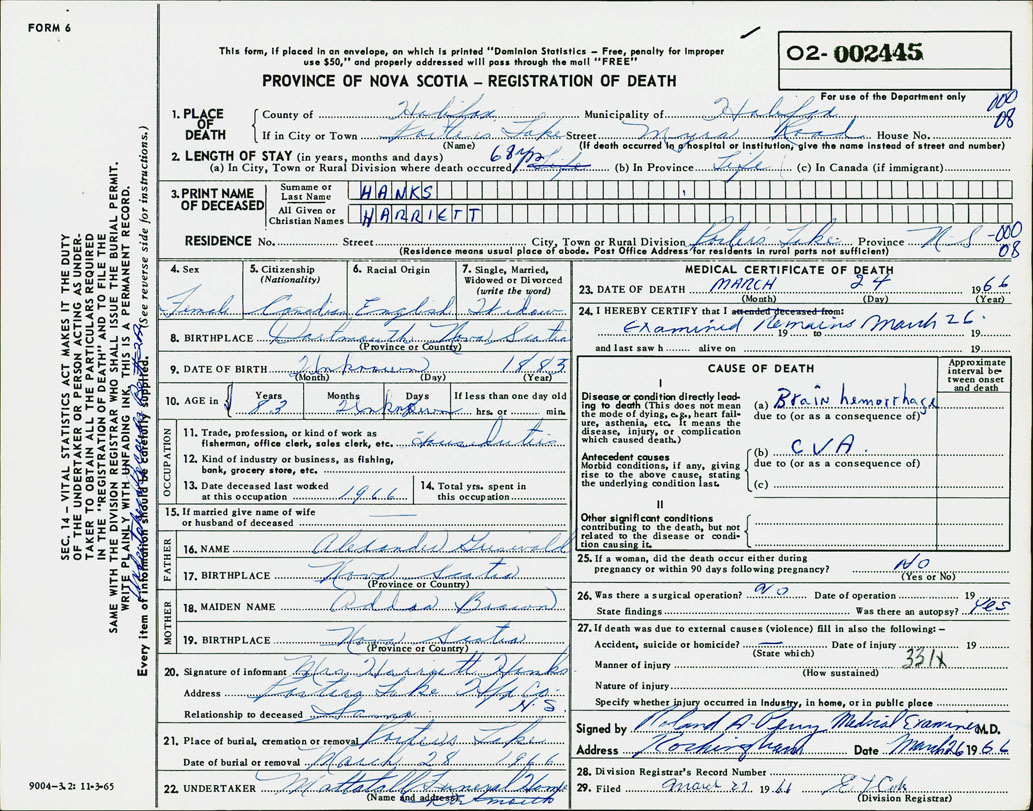 FORM 6
This form, if placed in an envelope, on which is printed "Dominion Statistics – Free, penalty for improper
use $50," and properly addressed will pass through the mail "FREE"
O2- 002445
PROVINCE OF NOVA SCOTIA – REGISTRATION OF DEATH
For use of the Department only
000
08
1. PLACE OF DEATH
County of Halifax Municipality of Halifax
If in City or Town Porters Lake Street Myra Road House No.
(Name) (If death occurred in a hospital or institution, give the name instead of street and number)
2. LENGTH OF STAY (in years, months and days)
(a) In City, Town or Rural Division where death occurred 68 yrs Life (b) In Province Life (c) In Canada (if immigrant)
3. PRINT NAME OF DECEASED
Surname or Last Name HANKS
All Given or Christian Names HARRIETT
RESIDENCE No. Street City, Town or Rural Division Porters Lake Province N-S -000
08
(Residence means usual place of abode. Post Office Address for residents in rural parts not sufficient)
4. Sex
Female
5. Citizenship
(Nationality)
Canadian
6. Racial Origin
English
7. Single, Married,
Widowed or Divorced
(write the word)
Widow
8. BIRTHPLACE Dartmouth Nova Scotia
(Province or Country)
9. DATE OF BIRTH Unknown 1883
(Month) (Day) (Year)
10. AGE in Years 83 Months Days Unknown If less than one day old
hrs. or min.
OCCUPATION
11. Trade, profession or kind of work as
fisherman, office clerk, sales clerk, etc. House Duties
12. Kind of industry or business, as fishing,
bank, grocery store, etc.
13. Date deceased last worked
at this occupation 1966
14. Total yrs. spent in
this occupation
15. If married give name of wife
or husband of deceased
FATHER
16. NAME Alexander Griswold
17. BIRTHPLACE Nova Scotia
(Province or Country)
MOTHER
18. MAIDEN NAME Brown
19. BIRTHPLACE Nova Scotia
(Province or Country)
20. Signature of informant Mrs Harriett Hanks
Address Porters Lake Hfx Co.
N.S.
Relationship to deceased Same
21. Place of burial, cremation or removal Porters Lake
Date of burial or removal March 28 1966
22. UNDERTAKER Mattatall Funeral Home
(Name and address) Dartmouth
MEDICAL CERTIFICATE OF DEATH
23. DATE OF DEATH MARCH 24 1966
(Month) (Day) (Year)
24. I HEREBY CERTIFY that I attended deceased from:
Examined Remains March 26 19 to 19
and last saw h alive on 19
CAUSE OF DEATH
Approximate
interval be-
tween onset
and death
I
Disease or condition directly lead-
ing to death (This does not mean
the mode of dying, e.g., heart fail-
ure, asthenia, etc. It means the
disease, injury, or complication
which caused death.)
(a) Brain hemorrhage
due to (or as a consequence of)
Antecedent causes
Morbid conditions, if any, giving
rise to the above cause, stating
the underlying condition last.
(b) CVA.
due to (or as a consequence of)
(c)
II
Other significant conditions
contributing to the death, but not
related to the disease or condi-
tion causing it.
25. If a woman, did the death occur either during
pregnancy or within 90 days following pregnancy? NO
(Yes or No)
26. Was there a surgical operation? NO Date of operation 19
State findings Was there an autopsy? Yes
27. If death was due to external causes (violence) fill in also the following: –
Accident, suicide or homicide? Date of injury 19
(State which) 331X
Manner of injury
(How sustained)
Nature of injury
Specify whether injury occurred in Industry, in home, or in public place
Signed by Roland A. Perry Medical Examiner M.D.
Address Rockingham Date March 26 1966
28. Division Registrar's Record Number
29. Filed March 27 1966
(Division Registrar)
SEC. 14 – VITAL STATISTICS ACT MAKES IT THE DUTY
OF THE UNDERTAKER OR PERSON ACTING AS UNDER-
TAKER TO OBTAIN ALL THE PARTICULARS REQUIRED
IN THE "REGISTRATION OF DEATH" AND TO FILE THE
SAME WITH THE DIVISION REGISTRAR WHO SHALL ISSUE THE BURIAL PERMIT.
WRITE PLAINLY WITH UNFADING INK, THIS IS A PERMANENT RECORD.
Every item of information should be carefully supplied. (See reverse side for instructions.)
9004-3.2: 11-3-65